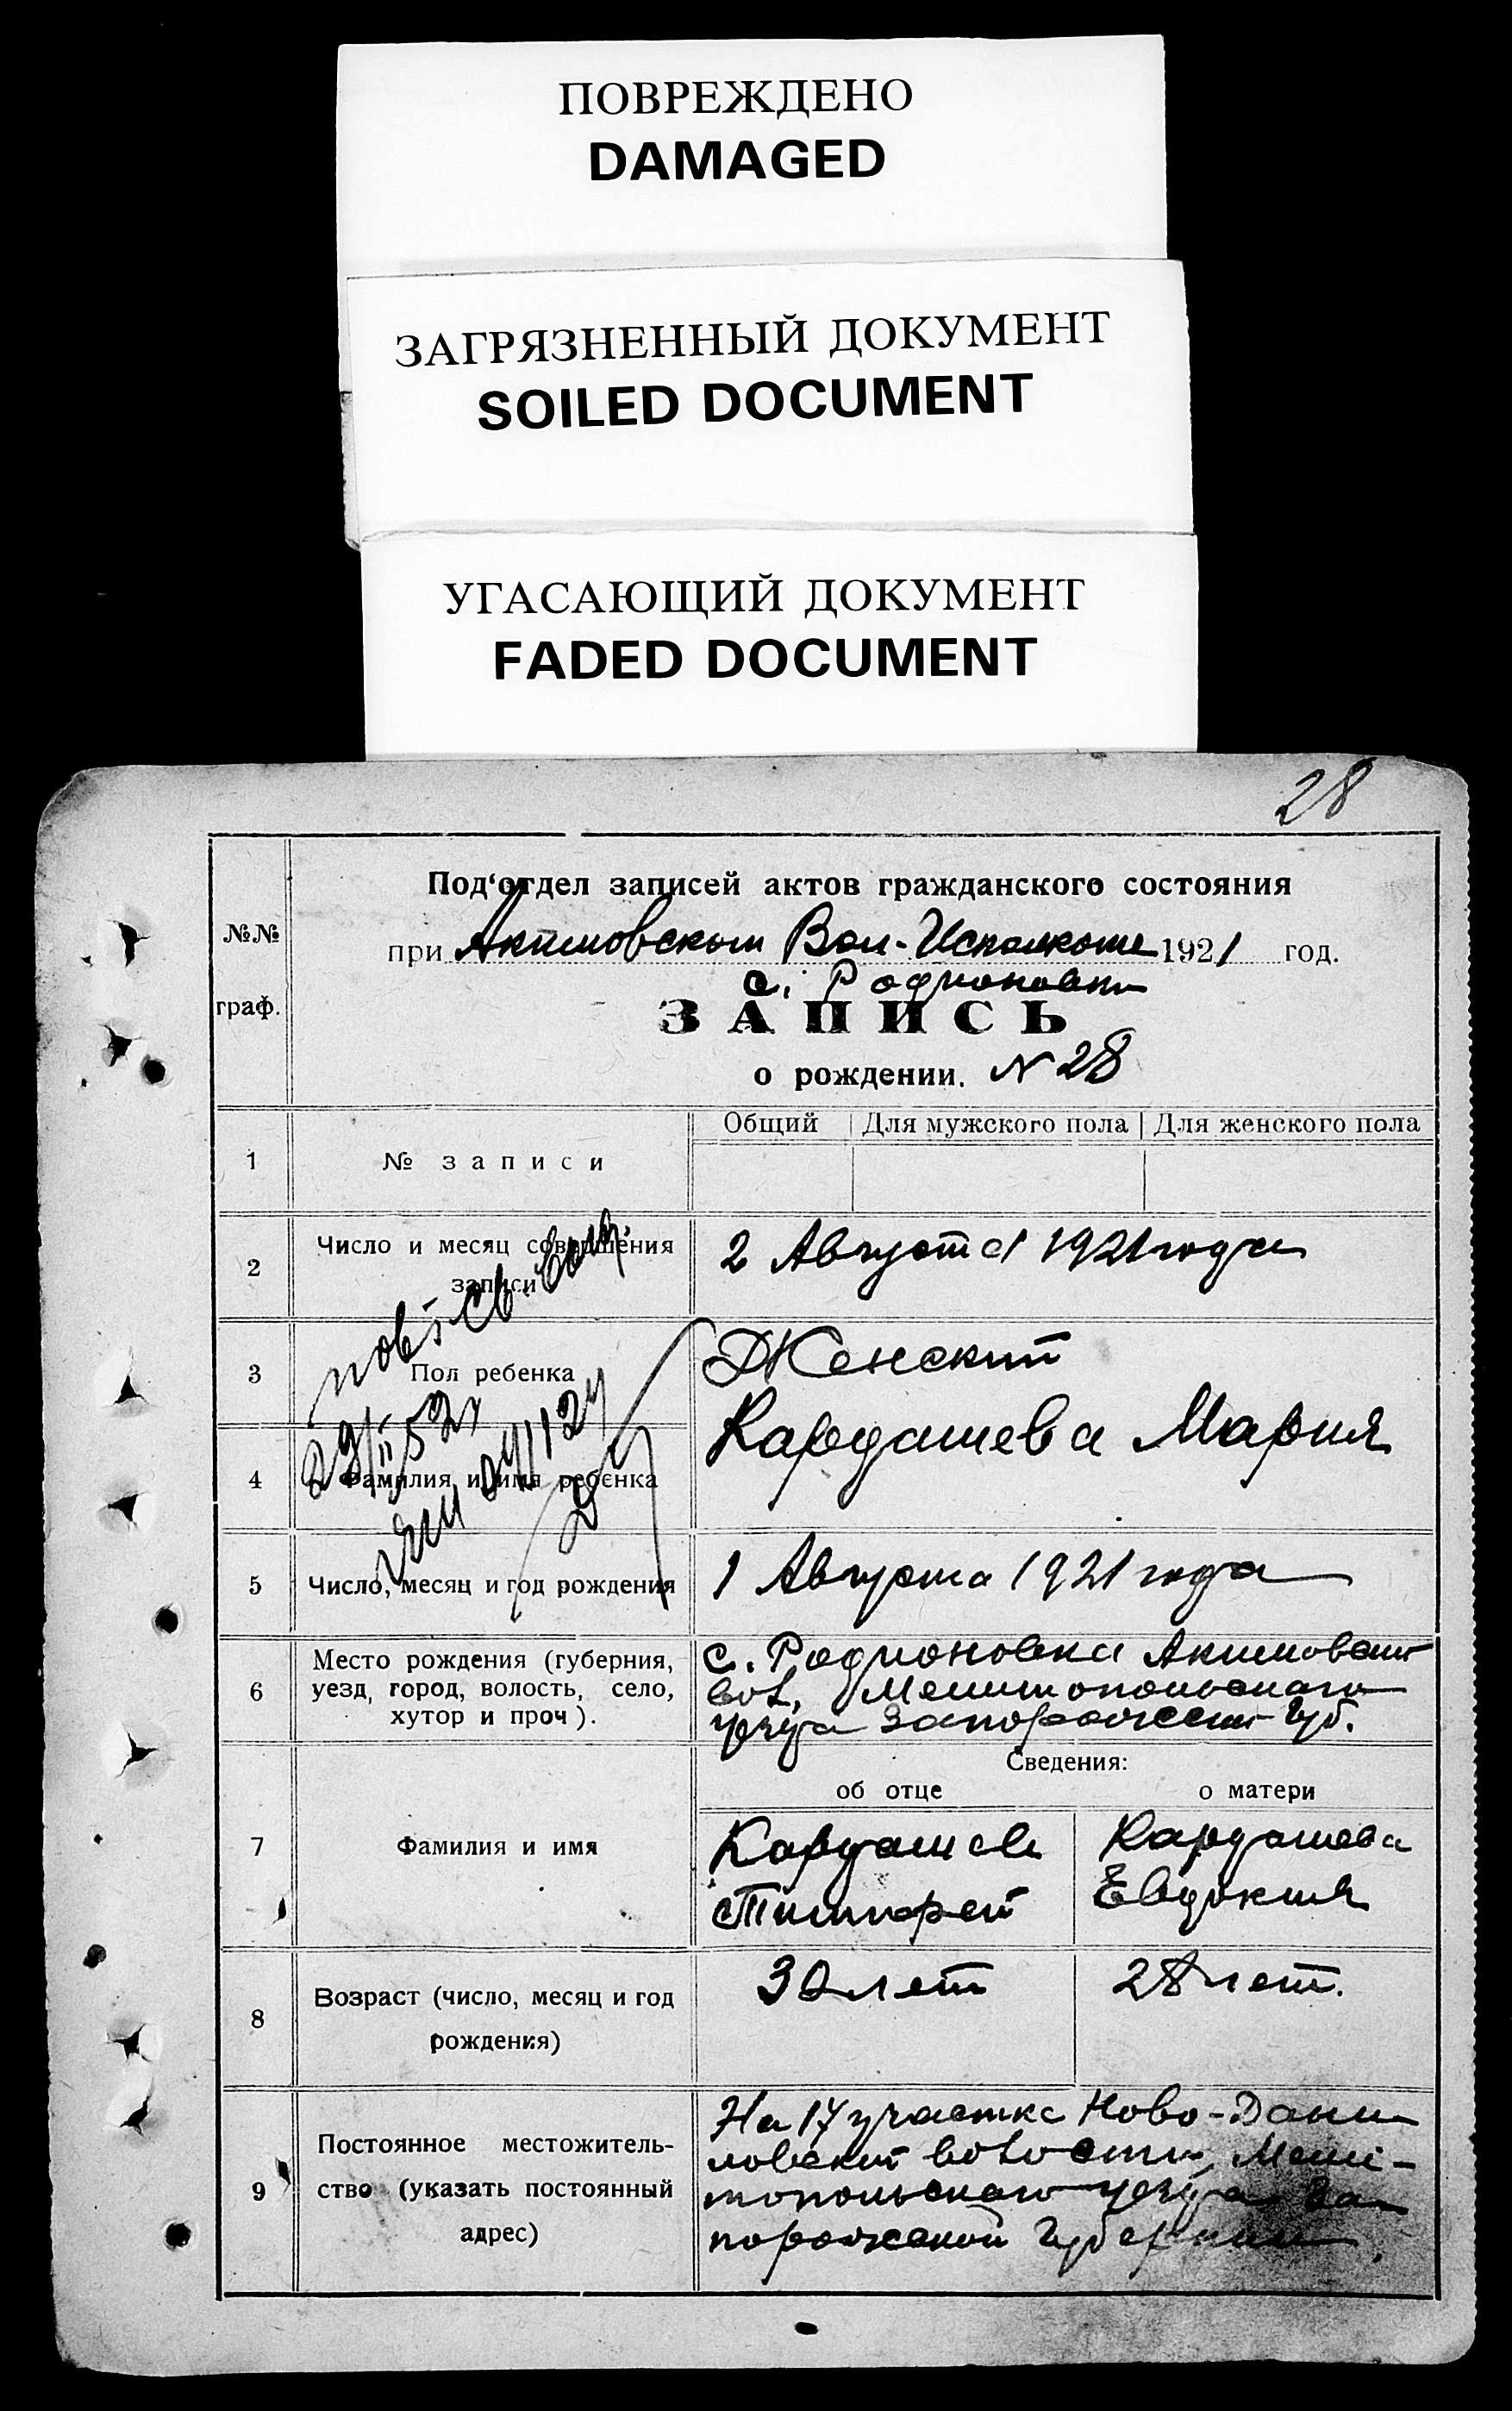 ПОВРЕЖДЕНО
DAMAGED
ЗАГРЯЗНЕННЫЙ ДОКУМЕНТ
SOILED DOCUMENT
УГАСАЮЩИЙ ДОКУМЕНТ
FADED DOCUMENT
28
№№
граф.
Под‘отдел записей актов гражданского состояния
при Акимовском Вол-Исполкоме 1921 год.
с. Родионовки
ЗАПИСЬ
о рождении. N 28
Общий Для мужского пола Для женского пола
1 № записи
2 Число и месяц совершения
записи
2 Августа 1921 года
3 Пол ребенка Женский
4 Фамилия и имя ребенка Кардашева Мария
повт. св. выд.
29/II 52г
5 Число, месяц и год рождения 1 Августа 1921 года
6 Место рождения (губерния,
уезд, город, волость, село,
хутор и проч).
с. Родионовка Акимовской
вол, Мелитопольскаго
уезда Запорожской Губ.
Сведения:
об отце о матери
7 Фамилия и имя
Кардашев
Тимофей
Кардашева
Евдокия
8 Возраст (число, месяц и год
рождения)
30 лет 28 лет.
9 Постоянное местожитель-
ство (указать постоянный
адрес)
На 17 участке Ново-Дани
ловской волости, Мели-
топольскаго уезда За
порожской Губернии